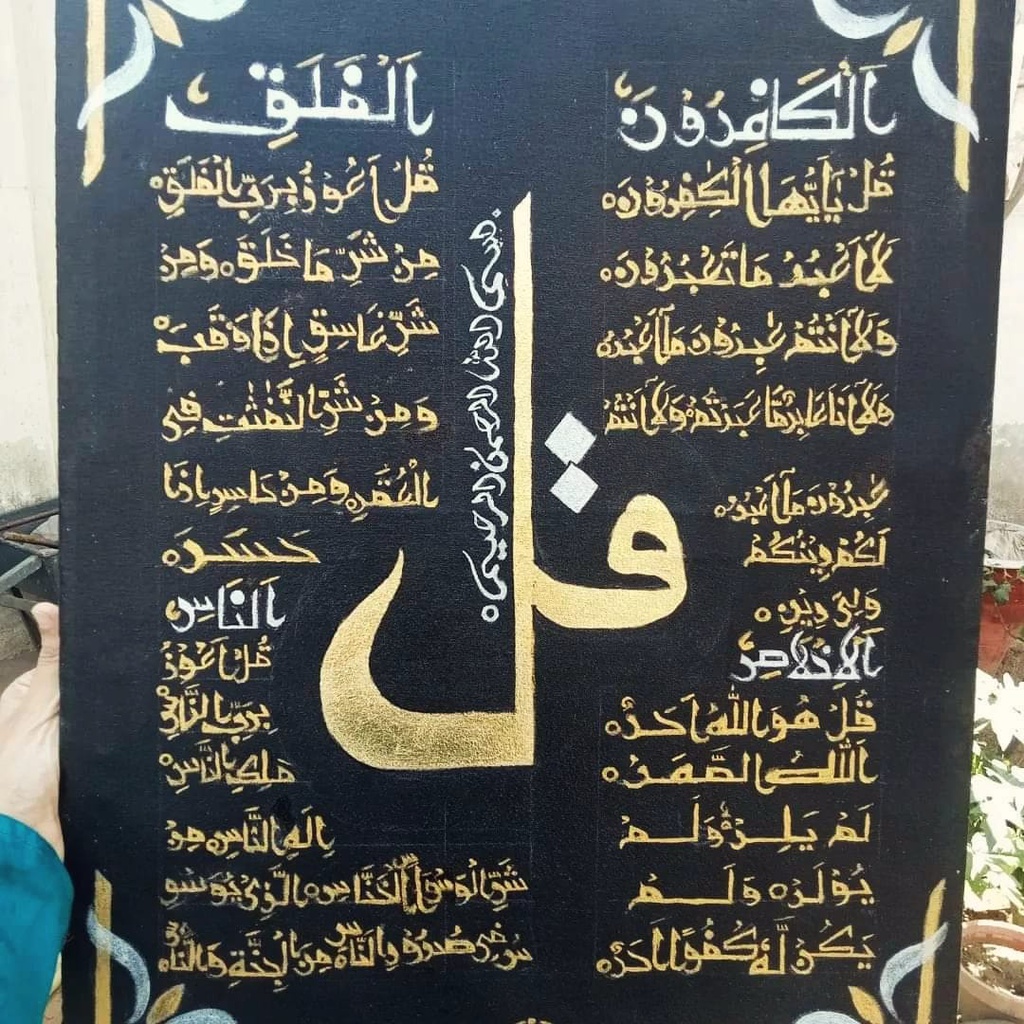 الكافرون
قُلْ يَا أَيُّهَا الْكٰفِرُوْنَ ه
لَا أَعْبُدُ مَا تَعْبُدُوْنَ ه
وَلَا أَنْتُمْ عٰبِدُوْنَ مَا أَعْبُدُ ه
وَلَا أَنَا عَابِدٌ مَّا عَبَدْتُّمْ ه وَلَا أَنْتُمْ
عٰبِدُوْنَ مَا أَعْبُدُ ه
لَكُمْ دِيْنُكُمْ
وَلِيَ دِيْنِ ه
الإخلاص
قُلْ هُوَ اللّٰهُ أَحَدٌ ه
اَللّٰهُ الصَّمَدُ ه
لَمْ يَلِدْ ه وَلَمْ
يُوْلَدْ ه وَلَمْ
يَكُنْ لَّهُ كُفُوًا أَحَدٌ ه
قل
الرحمن الرحيم ه
الفلق
قُلْ أَعُوْذُ بِرَبِّ الْفَلَقِ ه
مِنْ شَرِّ مَا خَلَقَ ه وَمِنْ
شَرِّ غَاسِقٍ إِذَا وَقَبَ ه
وَمِنْ شَرِّ النَّفّٰثٰتِ فِي
الْعُقَدِ ه وَمِنْ حَاسِدٍ إِذَا
حَسَدَ ه
الناس
قُلْ أَعُوْذُ
بِرَبِّ النَّاسِ ه
مَلِكِ النَّاسِ ه
إِلٰهِ النَّاسِ ه مِنْ
شَرِّ الْوَسْوَاسِ الْخَنَّاسِ ه الَّذِيْ يُوَسْوِ
سُ فِي صُدُوْرِ النَّاسِ ه مِنَ الْجِنَّةِ وَالنَّاسِ ه